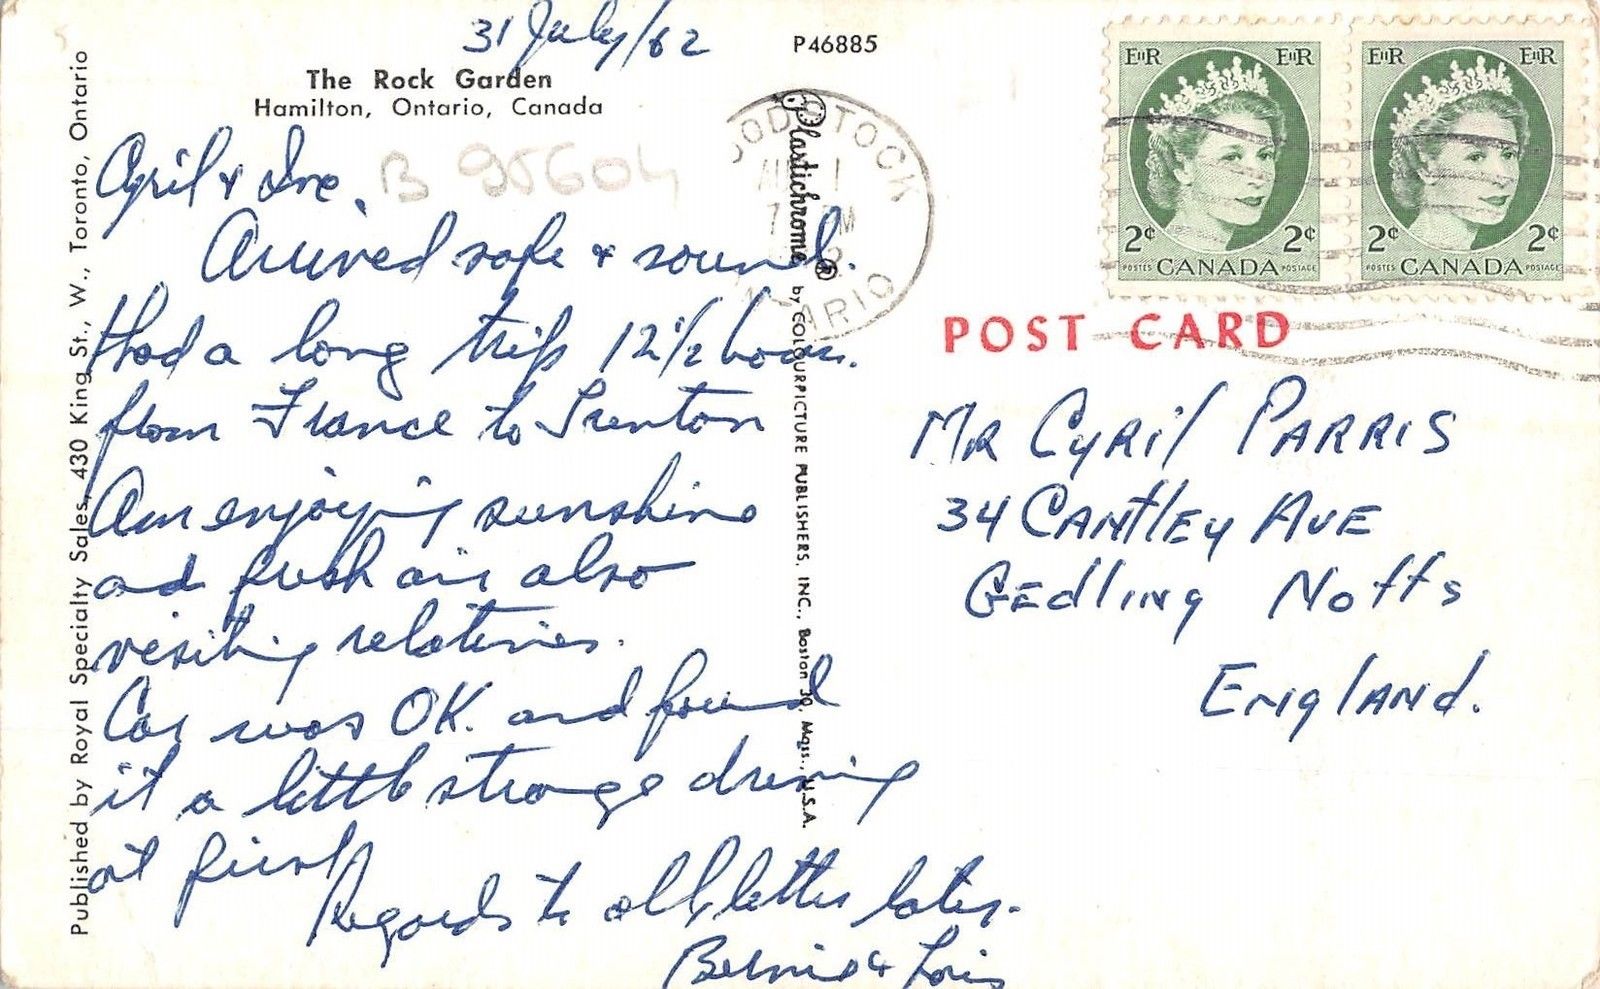 31 July/62
P46885
The Rock Garden
Hamilton, Ontario, Canada
B 95604
Cyril &
Arrived safe & sound.
Had a long trip 12 1/2 hours.
from France to Trenton
Am enjoying sunshine
and fresh air also
visiting relatives.
Car was OK. and found
it a little strange driving
at first
Regards to all, letter later.
Bernie & Lois
Published by Royal Specialty Sales, 430 King St., W., Toronto, Ontario
Plastichrome ® by COLOURPICTURE PUBLISHERS, INC., Boston 30, Mass., U.S.A.
EIIR EIIR
2¢ 2¢
POSTES CANADA POSTAGE
EIIR EIIR
2¢ 2¢
POSTES CANADA POSTAGE
POST CARD
MR CYRIL PARRIS
34 CANTLEY AVE
GEDLING NOTTS
ENGLAND.